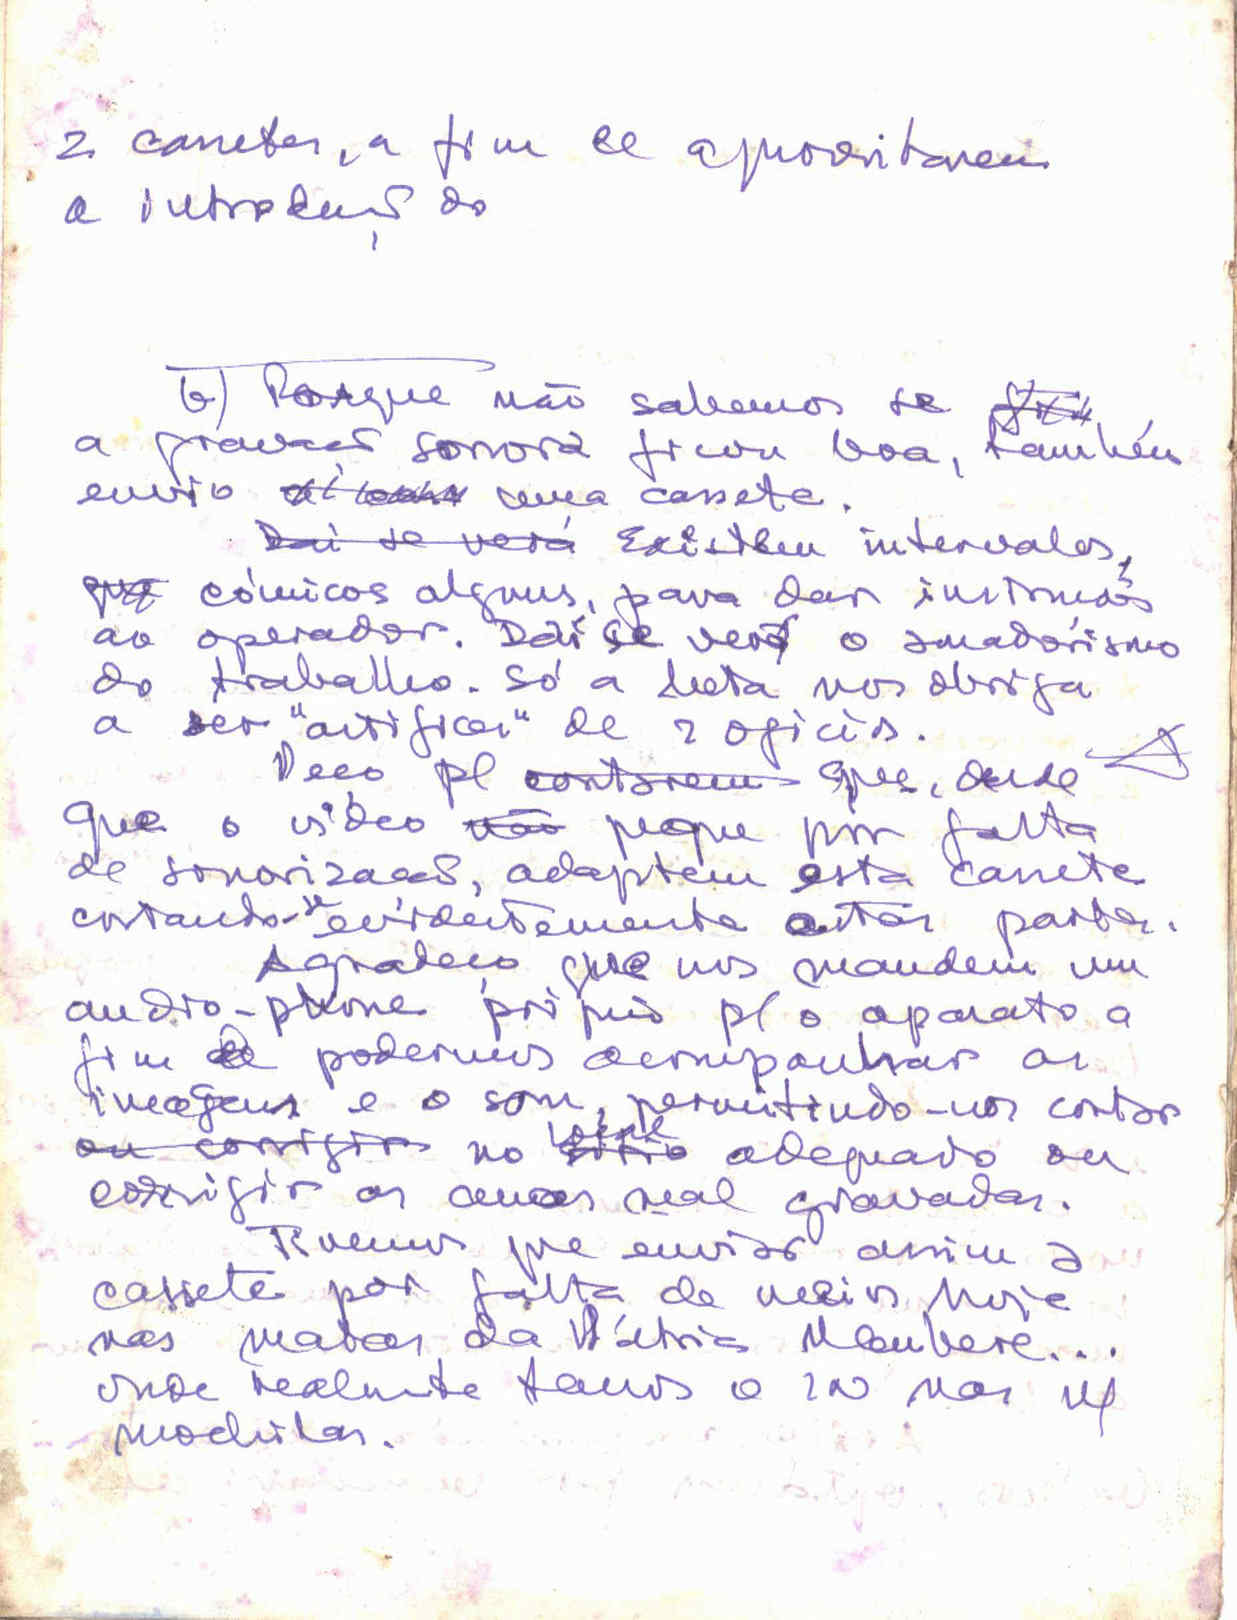 2 cassetes, a fim de aproveitarem
a introdução do
b) Porque não sabemos se
a gravação sonora ficou boa, também
envio uma cassete.
Daí se verá Existem intervalos,
que cómicos alguns, para dar instruções
ao operador. Daí se verá o amadorismo
do trabalho. Só a luta nos obriga
a ser "artífices" de 2 ofícios.
Peço pª cortarem que, desde
que o vídeo não peque por falta
de sonorização, adaptem esta cassete
cortando-se evidentemente estas partes.
Agradeço que nos mandem um
audio-phone próprio pª o aparato a
fim de podermos acompanhar as
imagens e o som, permitindo-nos cortar
ou corrigir no sítio adequado ou
corrigir as cenas mal gravadas.
Tivemos que enviar assim a
cassete por falta de meios hoje
nas matas da Pátria Maubere...
onde realmente temos o nas
mochilas.